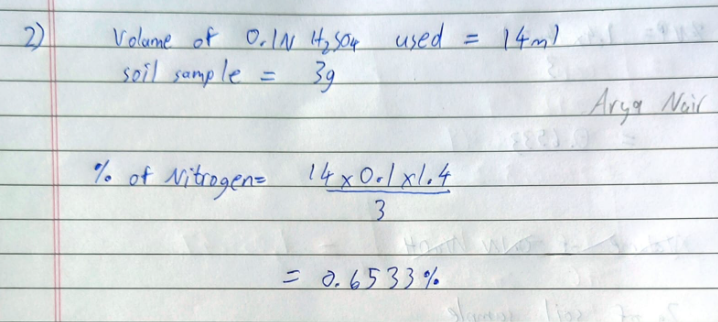 2) Volume of 0.1N H₂SO₄ used = 14ml
soil sample = 3g
Arya Nair
% of Nitrogen = 14 x 0.1 x 1.4
3
= 0.6533%